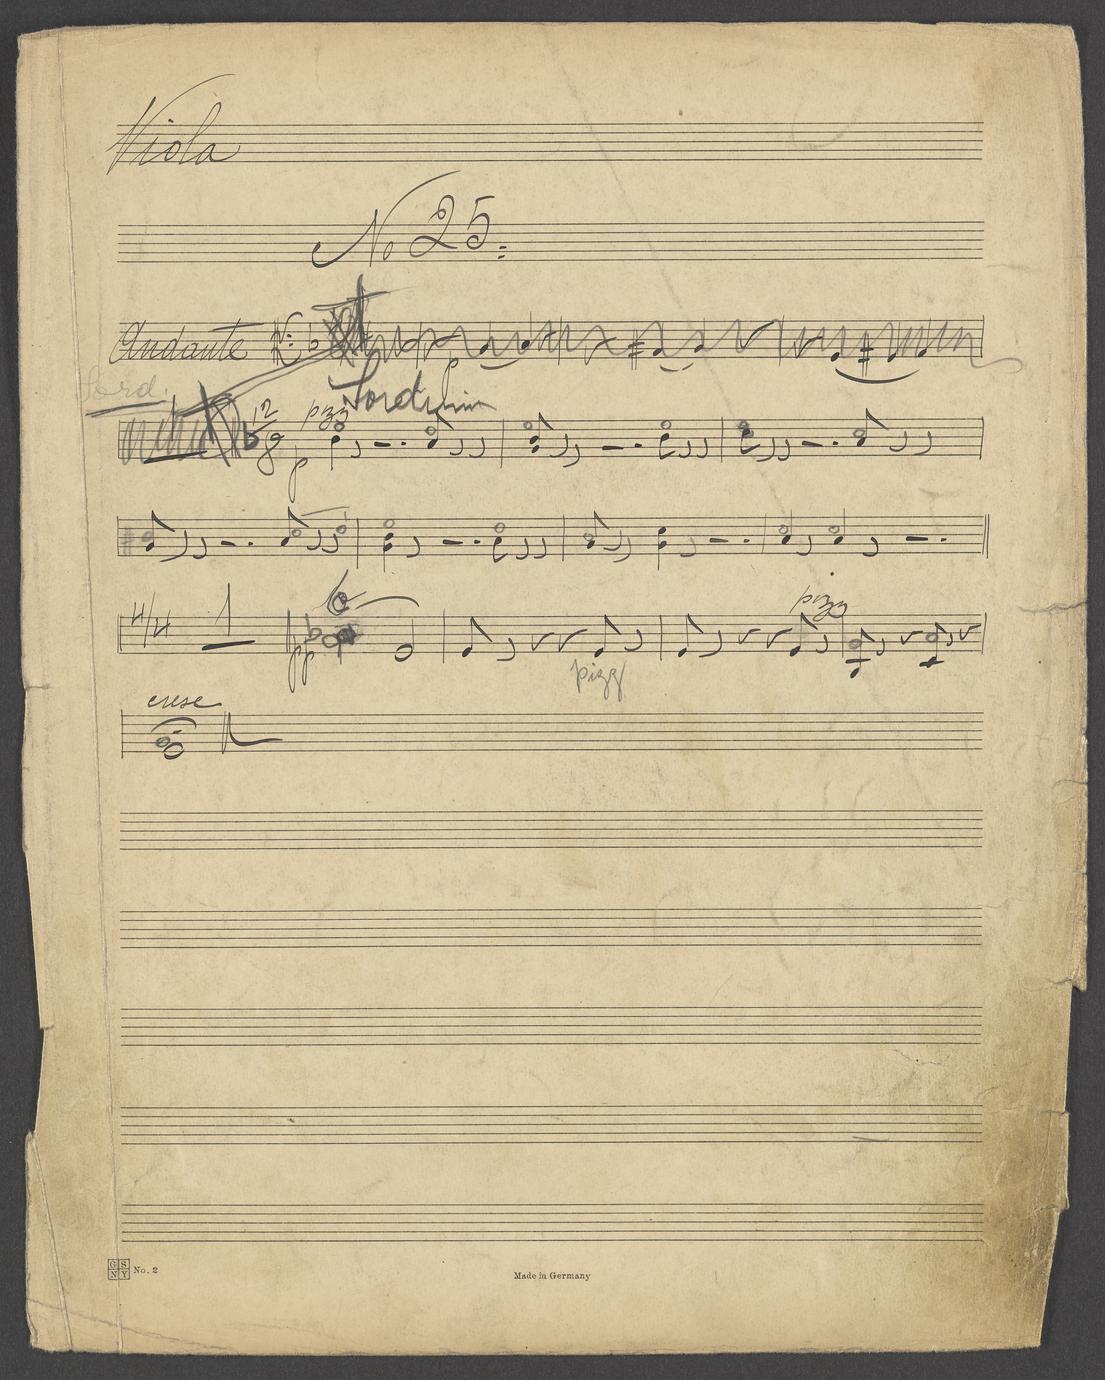 Viola
No 25.
Andante
Sord.
Sordin
12
8
pizz
p
4/4
1
pp
pizz
pizz
cresc
GS
NY
No. 2
Made in Germany